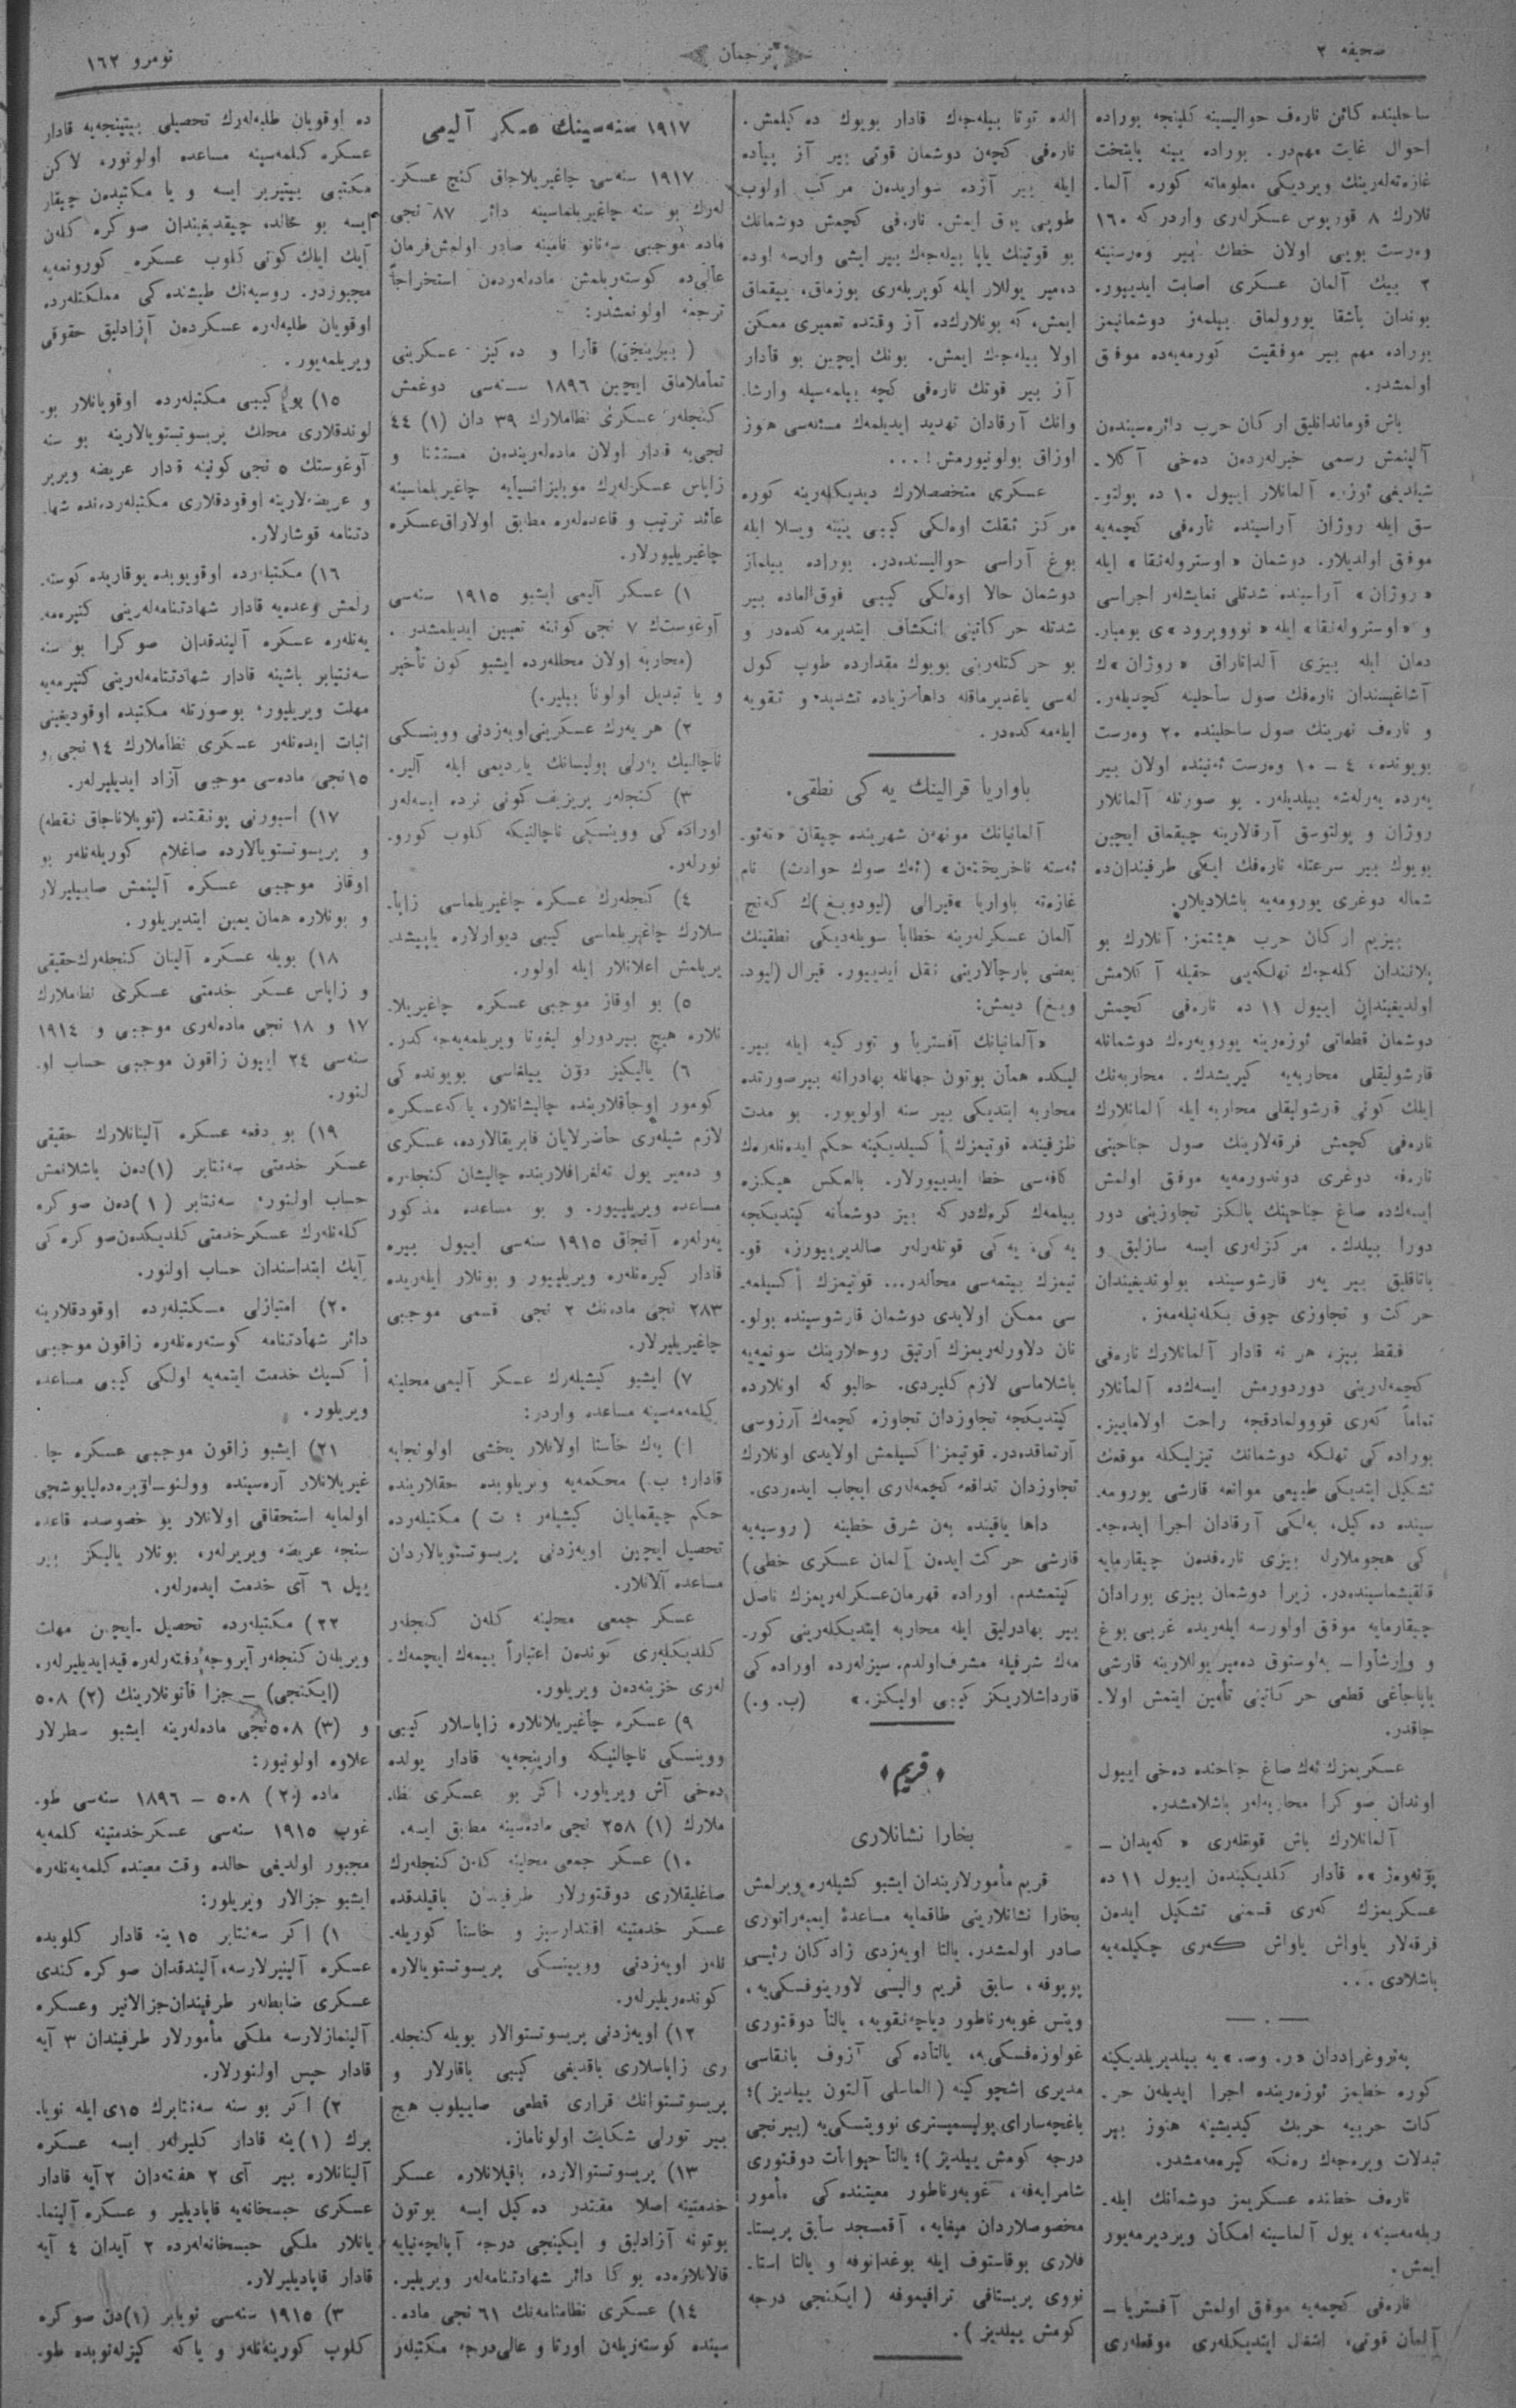 صحیفه ٢
ترجمان
نومرو ١٦٢
ساحلینده کائن ناره‌ف حوالیسینه کلینجه بوراده
احوال غایت مهم‌در. بوراده یینه پایتخت
غازه‌ته‌لرینك ویردیکی معلوماته کوره آلما-
نلارك ٨ قورپوس عسکرلری واردر که ١٦٠
وه‌رست بویی اولان خطك بیر وه‌رستینه
٢ بیك آلمان عسکری اصابت ایدییور.
بوندان باشقا یورولماق بیلمه‌ز دوشمانیمز
بوراده مهم بیر موفقیت کورمه‌یه‌ده موفق
اولمشدر.
باش قوماندانلیق ارکان حرب دائره‌سیندن
آلینمش رسمی خبرلردن دخی آکلا-
شیلدیغی ئوزره آلمانلار اییول ١٠ ده پولتو-
سق ایله روژان آراسینده ناره‌فی کچمه‌یه
موفق اولدیلار. دوشمان «اوستروله‌نقا» ایله
«روژان» آراسینده شدتلی نمایشلر اجراسی
و «اوستروله‌نقا» ایله «نووویرود»ی بومبار-
دمان ایله بیزی آلداتاراق «روژان»ك
آشاغیسندان ناره‌فك صول ساحلینه کچدیلر.
و ناره‌ف نهرینك صول ساحلینده ٢٠ وه‌رست
بویونده، ٤ – ١٠ وه‌رست ئه‌نینده اولان بیر
یه‌رده یه‌رله‌شه بیلدیلر. بو صورتله آلمانلار
روژان و پولتوسق آرقالارینه چیقماق ایچین
بویوك بیر سرعتله ناره‌فك ایکی طرفیندان‌ده
شماله دوغری یورومه‌یه باشلادیلار.
بیزیم ارکان حرب هیئتمز، آنلارك بو
پلانندان کله‌جك تهلکه‌یی حقیله آکلامش
اولدیغیندان اییول ١١ ده ناره‌فی کچمش
دوشمان قطعاتی ئوزه‌رینه یورویه‌رك دوشمانله
قارشولیقلی محاربه‌یه کیریشدك. محاربه‌نك
ایلك کونی قارشولیقلی محاربه ایله آلمانلارك
ناره‌فی کچمش فرقه‌لارینك صول جناحینی
ناره‌فه دوغری دوندورمه‌یه موفق اولمش
ایسه‌کده صاغ جناحینك یالکز تجاوزینی دور
دورا بیلدك. مرکزلری ایسه سازلیق و
باتاقلیق بیر یه‌ر قارشوسینده بولوندیغیندان
حرکت و تجاوزی چوق بکله‌نیله‌مه‌ز.
فقط بیز، هر نه قادار آلمانلارك ناره‌فی
کچمه‌لرینی دوردورمش ایسه‌کده آلمانلار
تماماً که‌ری قووولمادقجه راحت اولامایبز.
بوراده‌کی تهلکه دوشمانك تیزلیکله موقعك
تشکیل ایتدیکی طبیعی موانعه قارشی یورومه-
سینده ده‌کیل، به‌لکی آرقادان اجرا ایده‌جه-
کی هجوملارله بیزی ناره‌فدن چیقارمایه
قالقیشماسینده‌در. زیرا دوشمان بیزی بورادان
چیقارمایه موفق اولورسه ایلریده غربی بوغ
و وارشاوا – به‌لوستوق ده‌میر یوللارینه قارشی
یاپاجاغی قطعی حرکاتینی تأمین ایتمش اولا-
جاقدر.
عسکریمزك ئه‌ك صاغ جناحنده دخی اییول
اوندان صوکرا محاربه‌لر باشلامشدر.
آلمانلارك باش قوتلری «که‌یدان –
پونه‌وه‌ژ»ه قادار کلدیکیندن اییول ١١ ده
عسکریمزك که‌ری قسمنی تشکیل ایدن
فرقه‌لار یاواش یاواش که‌ری چکیلمه‌یه
باشلادی...
په‌تروغراددان «ر. وص.»یه بیلدیریلدیکینه
کوره خطمز ئوزه‌رینده اجرا ایدیلن حر-
کات حربیه حربك کیدیشینه هنوز بیر
تبدلات ویره‌جك ره‌نکه کیرمه‌مشدر.
ناره‌ف خطنده عسکریمز دوشمانك ایله-
ریله‌مه‌سینه، یول آلماسینه امکان ویردیرمه‌یور
ایمش.
ناره‌فی کچمه‌یه موفق اولمش آفستریا –
آلمان قوتی، اشغال ایتدیکلری موقعلری
الده توتا بیله‌جك قادار بویوك ده‌کیلمش.
ناره‌فی کچن دوشمان قوتی بیر آز پیاده
ایله بیر آزده سواریدن مرکب اولوب
طوپی یوق ایمش. ناره‌فی کچمش دوشمانك
بو قوتینك یاپا بیله‌جك بیر ایشی وارسه اوده
ده‌میر یوللار ایله کوپریلری بوزماق، ییقماق
ایمش، که بونلارك‌ده آز وقتده تعمیری ممکن
اولا بیله‌جك ایمش. بونك ایچین بو قادار
آز بیر قوتك ناره‌فی کچه بیلمه‌سیله وارشا-
وانك آرقادان تهدید ایدیلمه‌ك مسئله‌سی هنوز
اوزاق بولونیورمش!...
عسکری متخصصلارك دیدیکلرینه کوره
مرکز ثقلت اولکی کیبی یینه ویسلا ایله
بوغ آراسی حوالیسنده‌در. بوراده ییلماز
دوشمان حالا اولکی کیبی فوق‌العاده بیر
شدتله حرکاتینی انکشاف ایتدیرمه‌کده‌در و
بو حرکتلرینی بویوك مقدارده طوپ کول
له‌سی یاغدیرماقله داها زیاده تشدید و تقویه
ایله‌مه‌کده‌در.
باواریا قرالینك یه‌کی نطقی.
آلمانیانك مونهه‌ن شهرینده چیقان «نه‌ئو-
ئه‌سته ناخریختن» (ئه‌ك صوك حوادث) نام
غازه‌ته باواریا قیرالی (لیودویغ)ك که‌نج
آلمان عسکرلرینه خطاباً سویله‌دیکی نطقینك
بعضی پارچالارینی نقل ایدییور. قیرال (لیود-
ویغ) دیمش:
«آلمانیانك آفستریا و تورکیه ایله بیر-
لیکده همان بوتون جهانله بهادرانه بیر صورتده
محاربه ایتدیکی بیر سنه اولویور. بو مدت
ظرفینده قوتیمزك أکسیلدیکینه حکم ایده‌نلرك
کافه‌سی خطا ایدییورلار. بالعکس هیکزه
بیلمه‌ك کره‌کدر که بیز دوشمانه کیتدیکجه
یه‌کی، یه‌کی قوتلرلر صالدیرییورز، قو-
تیمزك بیتمه‌سی محالدر... قوتیمزك أکسیلمه-
سی ممکن اولایدی دوشمان قارشوسینده بولو-
نان دلاورلریمزك آرتیق روحلارینك سونمه‌یه
باشلاماسی لازم کلیردی. حالبوکه اونلارده
کیتدیکجه تجاوزدان تجاوزه کچمه‌ك آرزوسی
آرتماقده‌در. قوتیمز أکسیلمش اولایدی اونلارك
تجاوزدان تدافعه کچمه‌لری ایجاب ایدردی.
داها یاقینده بن شرق خطینه (روسیه‌یه
قارشی حرکت ایدن آلمان عسکری خطی)
کیتمشدم. اوراده قهرمان عسکرلریمزك ناصل
بیر بهادرلیق ایله محاربه ایتدیکلرینی کور-
مه‌ك شرفیله مشرف‌اولدم. سیزلرده اوراده‌کی
قارداشلاریکز کیبی اولیکز.» (ب. و.)
قریم
بخارا نشانلاری
قریم مأمورلاریندان ایشبو کشیلره ویرلمش
بخارا نشانلارینی طاقمایه مساعدهٔ ایمپه‌راتوری
صادر اولمشدر. یالتا اویه‌زدی زادکان رئیسی
پوپوفه، سابق قریم والیسی لاورینوفسکی‌یه،
ویتس غوبه‌رناطور دیاچه‌نقویه، یالتا دوقتوری
غولوزه‌فسکی‌یه، یالتاده‌کی آزوف بانقاسی
مدیری اشچوکینه (الماسلی آلتون ییلدیز)؛
باغچه‌سارای پولیسمیستری نوویتسکی‌یه (بیرنجی
درجه کومش ییلدیز)؛ یالتا حیوانات دوقتوری
شامرایه‌فه، غوبه‌رناطور معیتنده‌کی مأمور
مخصوصلاردان میفایه، آقمسجد سابق پریستا-
فلاری بوقاستوف ایله بوغدانوفه و یالتا استا-
نووی پریستافی ترافیموفه (ایکنجی درجه
کومش ییلدیز).
١٩١٧ سنه‌سینك عسکر آلیمی
١٩١٧ سنه‌سی چاغیریلاجاق کنج عسکر-
لرك بو سنه چاغیریلماسینه دائر ٨٧ نجی
ماده موجبی سه‌ناتو نامینه صادر اولمش‌فرمان
عالی‌ده کوسته‌ریلمش ماده‌لردن استخراجاً
ترجمه اولونمشدر:
(بیرینجی) قارا و ده‌کیز عسکرینی
تماملاماق ایچین ١٨٩٦ سنه‌سی دوغمش
کنجلر عسکری نظاملارك ٣٩ دان (١) ٤٤
نجی‌یه قادار اولان ماده‌لریندن مستثنا و
زاپاس عسکرلرك موبیلیزاتسیایه چاغیریلماسینه
عائد ترتیب و قاعده‌لره مطابق اولاراق‌عسکره
چاغیریلییورلار.
١) عسکر آلیمی ایشبو ١٩١٥ سنه‌سی
آوغوستك ٧ نجی کونینه تعیین ایدیلمشدر.
(محاربه اولان محللرده ایشبو کون تأخیر
و یا تبدیل اولونا بیلیر.)
٢) هر یه‌رك عسکرینی اویه‌زدنی ووینسکی
ناچالنیك یه‌رلی پولیسانك یاردیمی ایله آلیر.
٣) کنجلر پریزیف کونی نرده ایسه‌لر
اوراده‌کی ووینسکی ناچالنیکه کلوب کورو-
نورلر.
٤) کنجلرك عسکره چاغیریلماسی زاپا-
سلارك چاغیریلماسی کیبی دیوارلاره یاپیشد-
یریلمش اعلانلار ایله اولور.
٥) بو اوقاز موجبی عسکره چاغیریلا-
نلاره هیچ بیردورلو لیغوتا ویریلمه‌یه‌جه‌کدر.
٦) یالیکیز دون ییلغاسی بویونده‌کی
کومور اوجاقلارینده چالیشانلار، یاکه‌عسکره
لازم شیلری حاضرلایان فابریقالارده، عسکری
و ده‌میر یول ته‌لغرافلارینده چالیشان کنجلره
مساعده ویریلییور. و بو مساعده مذکور
یه‌رلره آنجاق ١٩١٥ سنه‌سی اییول بیره
قادار کیره‌نلره ویریلییور و بونلار ایلریده
٢٨٣ نجی ماده‌نك ٢ نجی قسمی موجبی
چاغیریلیرلار.
٧) ایشبو کیشیلرك عسکر آلیمی محلینه
کیلمه‌مه‌سینه مساعده واردر:
ا) پك خاستا اولانلار یخشی اولونجایه
قادار؛ ب) محکمه‌یه ویریلوبده حقلارینده
حکم چیقمایان کیشیلر؛ ت) مکتبلرده
تحصیل ایچین اویه‌زدنی پریسوتستویالاردان
مساعده آلانلار.
عسکر جمعی محلینه کلن کنجلر
کلدیکلری کوندن اعتباراً ییمه‌ك ایچمه‌ك-
لری خزینه‌دن ویریلور.
٩) عسکره چاغیریلانلاره زاپاسلار کیبی
ووینسکی ناچالنیکه وارینجه‌یه قادار یولده
دخی آش ویریلور. اکر بو عسکری نظا-
ملارك (١) ٢٥٨ نجی ماده‌سینه مطابق ایسه.
١٠) عسکر جمعی محلینه کلن کنجلرك
صاغلیقلاری دوقتورلار طرفیندن باقیلدقده
عسکر خدمتینه اقتدارسیز و خاستا کوریله-
نلر اویه‌زدنی ووینسکی پریسوتستویالاره
کونده‌ریلیرلر.
١٢) اویه‌زدنی پریسوتستوالار بویله کنجله-
ری زاپاسلاری باقدیغی کیبی باقارلار و
پریسوتستوانك قراری قطعی صاییلوب هیچ
بیر تورلی شکایت اولوناماز.
١٣) پریسوتستوالارده باقیلانلاره عسکر
خدمتینه اصلا مقتدر ده‌کیل ایسه بوتون
بوتونه آزادلیق و ایکینجی درجه آپالچه‌نیایه
قالانلارده بوکا دائر شهادتنامه‌لر ویریلیر.
١٤) عسکری نظامنامه‌نك ٦١ نجی ماده-
سینده کوسته‌ریلن اورتا و عالی درجه مکتبلر
ده اوقویان طلبه‌لرك تحصیلی بیتینجه‌یه قادار
عسکره کیلمه‌سینه مساعده اولونور، لاکن
مکتبی بیتیریر ایسه و یا مکتبدن چیقار
ایسه بو حالده، چیقدیغیندان صوکره کلن
آیك ایلك کونی کلوب عسکره کورونمه‌یه
مجبوردر. روسیه‌نك طیشنده‌کی مملکتلرده
اوقویان طلبه‌لره عسکردن آزادلیق حقوقی
ویریلمه‌یور.
١٥) بو کیبی مکتبلرده اوقویانلار بو-
لوندقلاری محلك پریسوتستویالارینه بو سنه
آوغوستك ٥ نجی کونینه قدار عریضه ویریر
و عریضه‌لارینه اوقودقلاری مکتبلردنده شها-
دتنامه قوشارلار.
١٦) مکتبلرده اوقویوبده یوقاریده کوسته-
رلمش وعده‌یه قادار شهادتنامه‌لرینی کتیرمه-
یه‌نلره عسکره آلیندقدان صوکرا بو سنه
سه‌نتیابر باشینه قادار شهادتنامه‌لرینی کتیرمه‌یه
مهلت ویریلیور، بوصورتله مکتبده اوقودیغینی
اثبات ایده‌نلر عسکری نظاملارك ١٤ نجی و
١٥نجی ماده‌سی موجبی آزاد ایدیلیرلر.
١٧) اسبورنی پونقتده (توپلاناجاق نقطه)
و پریسوتستویالارده صاغلام کوریله‌نلر بو
اوقاز موجبی عسکره آلینمش صاییلیرلار
و بونلاره همان یمین ایتدیریلور.
١٨) بویله عسکره آلینان کنجلرك‌حقیقی
و زاپاس عسکر خدمتی عسکری نظاملارك
١٧ و ١٨ نجی ماده‌لری موجبی و ١٩١٤
سنه‌سی ٢٤ اییون زاقون موجبی حساب او-
لنور.
١٩) بو دفعه عسکره آلینانلارك حقیقی
عسکر خدمتی سه‌نتابر (١)دن باشلانمش
حساب اولنور، سه‌نتابر (١)دن صوکره
کله‌نلرك عسکرخدمتی کلدیکدن‌صوکره‌کی
آیك ابتداسندان حساب اولنور.
٢٠) امتیازلی مکتبلرده اوقودقلارینه
دائر شهادتنامه کوسته‌ره‌نلره زاقون موجبی
أکسیك خدمت ایتمه‌یه اولکی کیبی مساعده
ویریلور.
٢١) ایشبو زاقون موجبی عسکره چا-
غیریلانلار آره‌سینده وولنو-اوپره‌ده‌لیایوشچی
اولمایه استحقاقی اولانلار بو خصوصده قاعده
سنجه عریضه ویریرلر، بونلار یالیکز بیر
ییل ٦ آی خدمت ایدرلر.
٢٢) مکتبلرده تحصیل ایچین مهلت
ویریلن کنجلر آیروجه دفتره‌لره قیدایدیلیرلر.
(ایکنجی) – جزا قانونلارینك (٢) ٥٠٨
و (٣) ٥٠٨نجی ماده‌لرینه ایشبو سطرلار
علاوه اولونیور:
ماده (٢٠) ٥٠٨ – ١٨٩٦ سنه‌سی طو-
غوب ١٩١٥ سنه‌سی عسکرخدمتینه کلمه‌یه
مجبور اولدیغی حالده وقت معینده کلمه‌یه‌نلره
ایشبو جزالار ویریلور:
١) اکر سه‌نتابر ١٥ ینه قادار کلوبده
عسکره آلینیرلارسه، آلیندقدان صوکره‌کندی
عسکری ضابطلر طرفیندان‌جزالانیر وعسکره
آلینمازلارسه ملکی مأمورلار طرفیندان ٣ آیه
قادار حبس اولنورلار.
٢) اکر بو سنه سه‌نتابرك ١٥ی ایله نویا-
برك (١)ینه قادار کلیرلر ایسه عسکره
آلینانلاره بیر آی ٢ هفته‌دان ٢ آیه قادار
عسکری حبسخانه‌یه قاپادیلیر و عسکره آلینما-
یانلار ملکی حبسخانه‌لرده ٢ آیدان ٤ آیه
قادار قاپادیلیرلار.
٣) ١٩١٥ سنه‌سی نویابر (١)دن صوکره
کلوب کورینه‌نلر و یاکه کیزله‌نوبده طو-